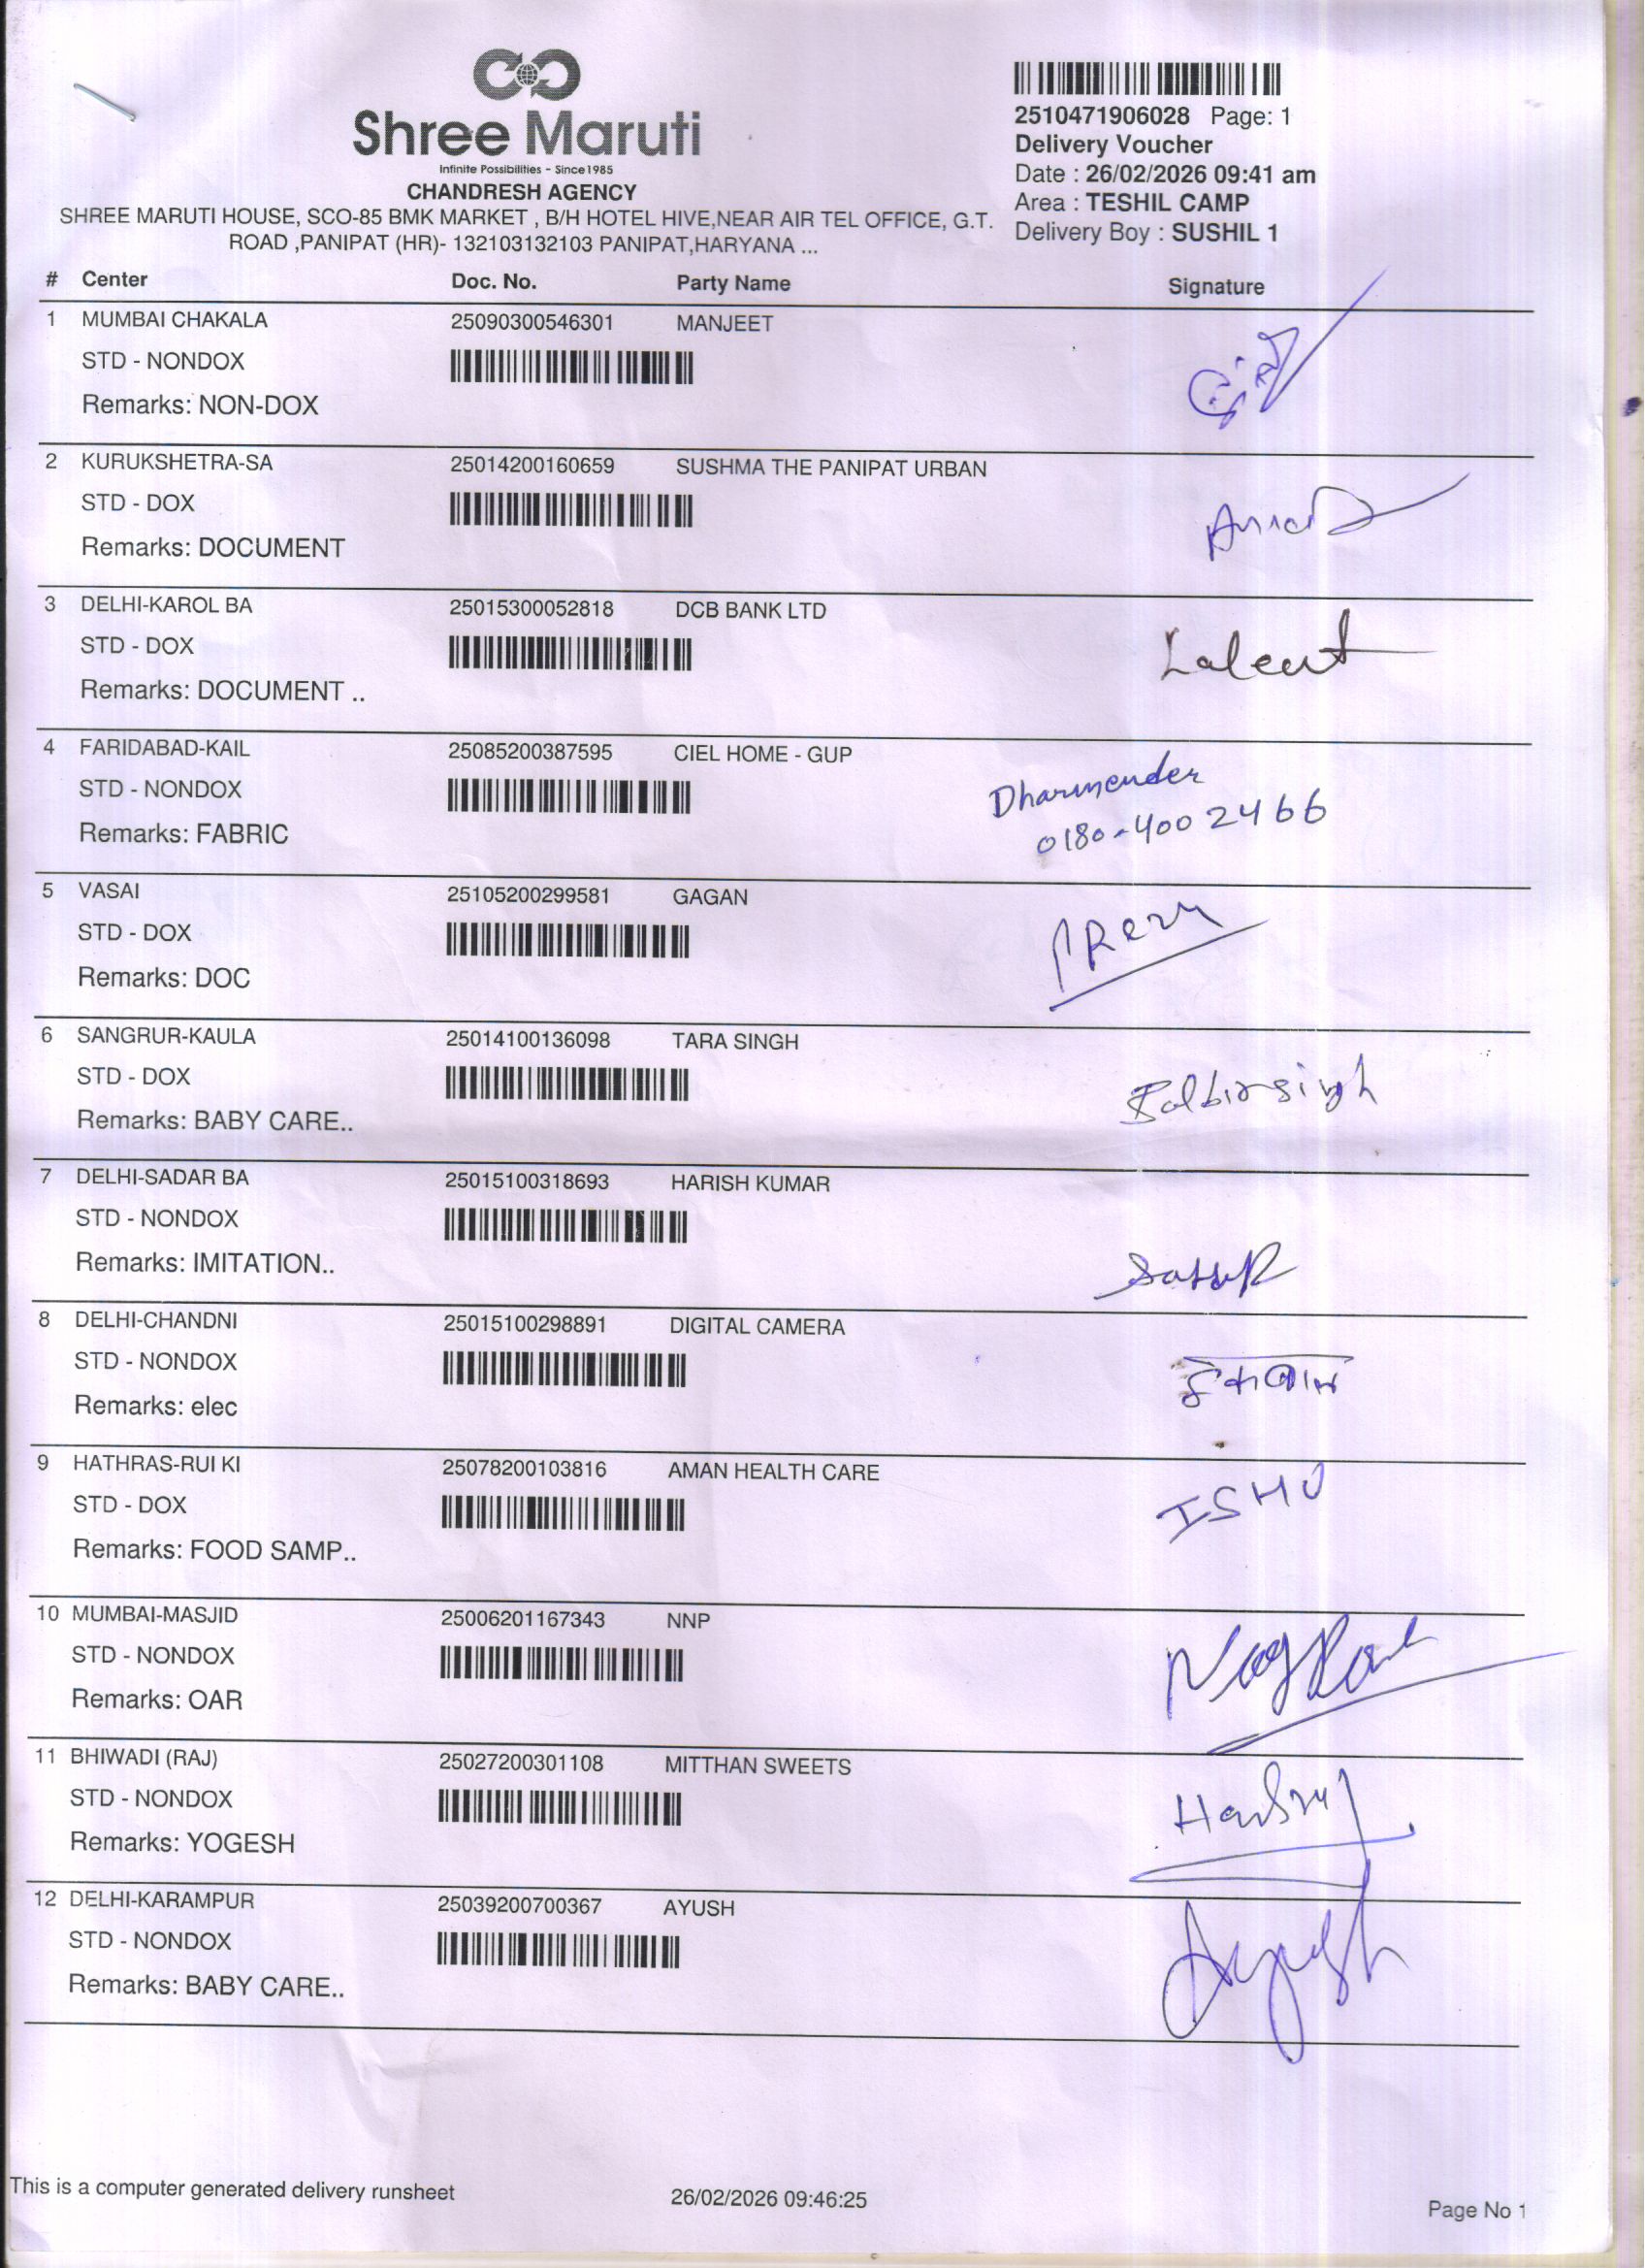 Shree Maruti
Infinite Possibilities - Since1985
CHANDRESH AGENCY
SHREE MARUTI HOUSE, SCO-85 BMK MARKET , B/H HOTEL HIVE,NEAR AIR TEL OFFICE, G.T.
ROAD ,PANIPAT (HR)- 132103132103 PANIPAT,HARYANA ...
2510471906028 Page: 1
Delivery Voucher
Date : 26/02/2026 09:41 am
Area : TESHIL CAMP
Delivery Boy : SUSHIL 1
# Center Doc. No. Party Name Signature
1 MUMBAI CHAKALA 25090300546301 MANJEET
STD - NONDOX
Remarks: NON-DOX
2 KURUKSHETRA-SA 25014200160659 SUSHMA THE PANIPAT URBAN
STD - DOX
Remarks: DOCUMENT
3 DELHI-KAROL BA 25015300052818 DCB BANK LTD
STD - DOX
Remarks: DOCUMENT ..
4 FARIDABAD-KAIL 25085200387595 CIEL HOME - GUP
Dharmender
STD - NONDOX
0180-4002466
Remarks: FABRIC
5 VASAI 25105200299581 GAGAN
STD - DOX
Remarks: DOC
6 SANGRUR-KAULA 25014100136098 TARA SINGH
STD - DOX
Remarks: BABY CARE..
7 DELHI-SADAR BA 25015100318693 HARISH KUMAR
STD - NONDOX
Remarks: IMITATION..
8 DELHI-CHANDNI 25015100298891 DIGITAL CAMERA
STD - NONDOX
Remarks: elec
9 HATHRAS-RUI KI 25078200103816 AMAN HEALTH CARE
STD - DOX ISHU
Remarks: FOOD SAMP..
10 MUMBAI-MASJID 25006201167343 NNP
STD - NONDOX
Remarks: OAR
11 BHIWADI (RAJ) 25027200301108 MITTHAN SWEETS
STD - NONDOX
Remarks: YOGESH
12 DELHI-KARAMPUR 25039200700367 AYUSH
STD - NONDOX Ayush
Remarks: BABY CARE..
This is a computer generated delivery runsheet 26/02/2026 09:46:25 Page No 1